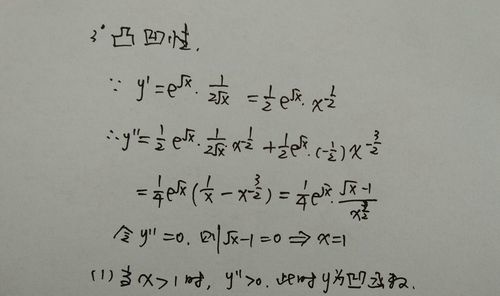 3° 凸凹性.
∵ y' = e^√x · 1/(2√x) = 1/2 e^√x · x^(-1/2)
∴ y'' = 1/2 e^√x · 1/(2√x) · x^(-1/2) + 1/2 e^√x · (-1/2) x^(-3/2)
= 1/4 e^√x (1/x - x^(-3/2)) = 1/4 e^√x · (√x - 1)/x^(3/2)
令 y'' = 0. 则 √x - 1 = 0 ⇒ x = 1
(1) 当 x > 1 时, y'' > 0. 此时 y 为凹函数.